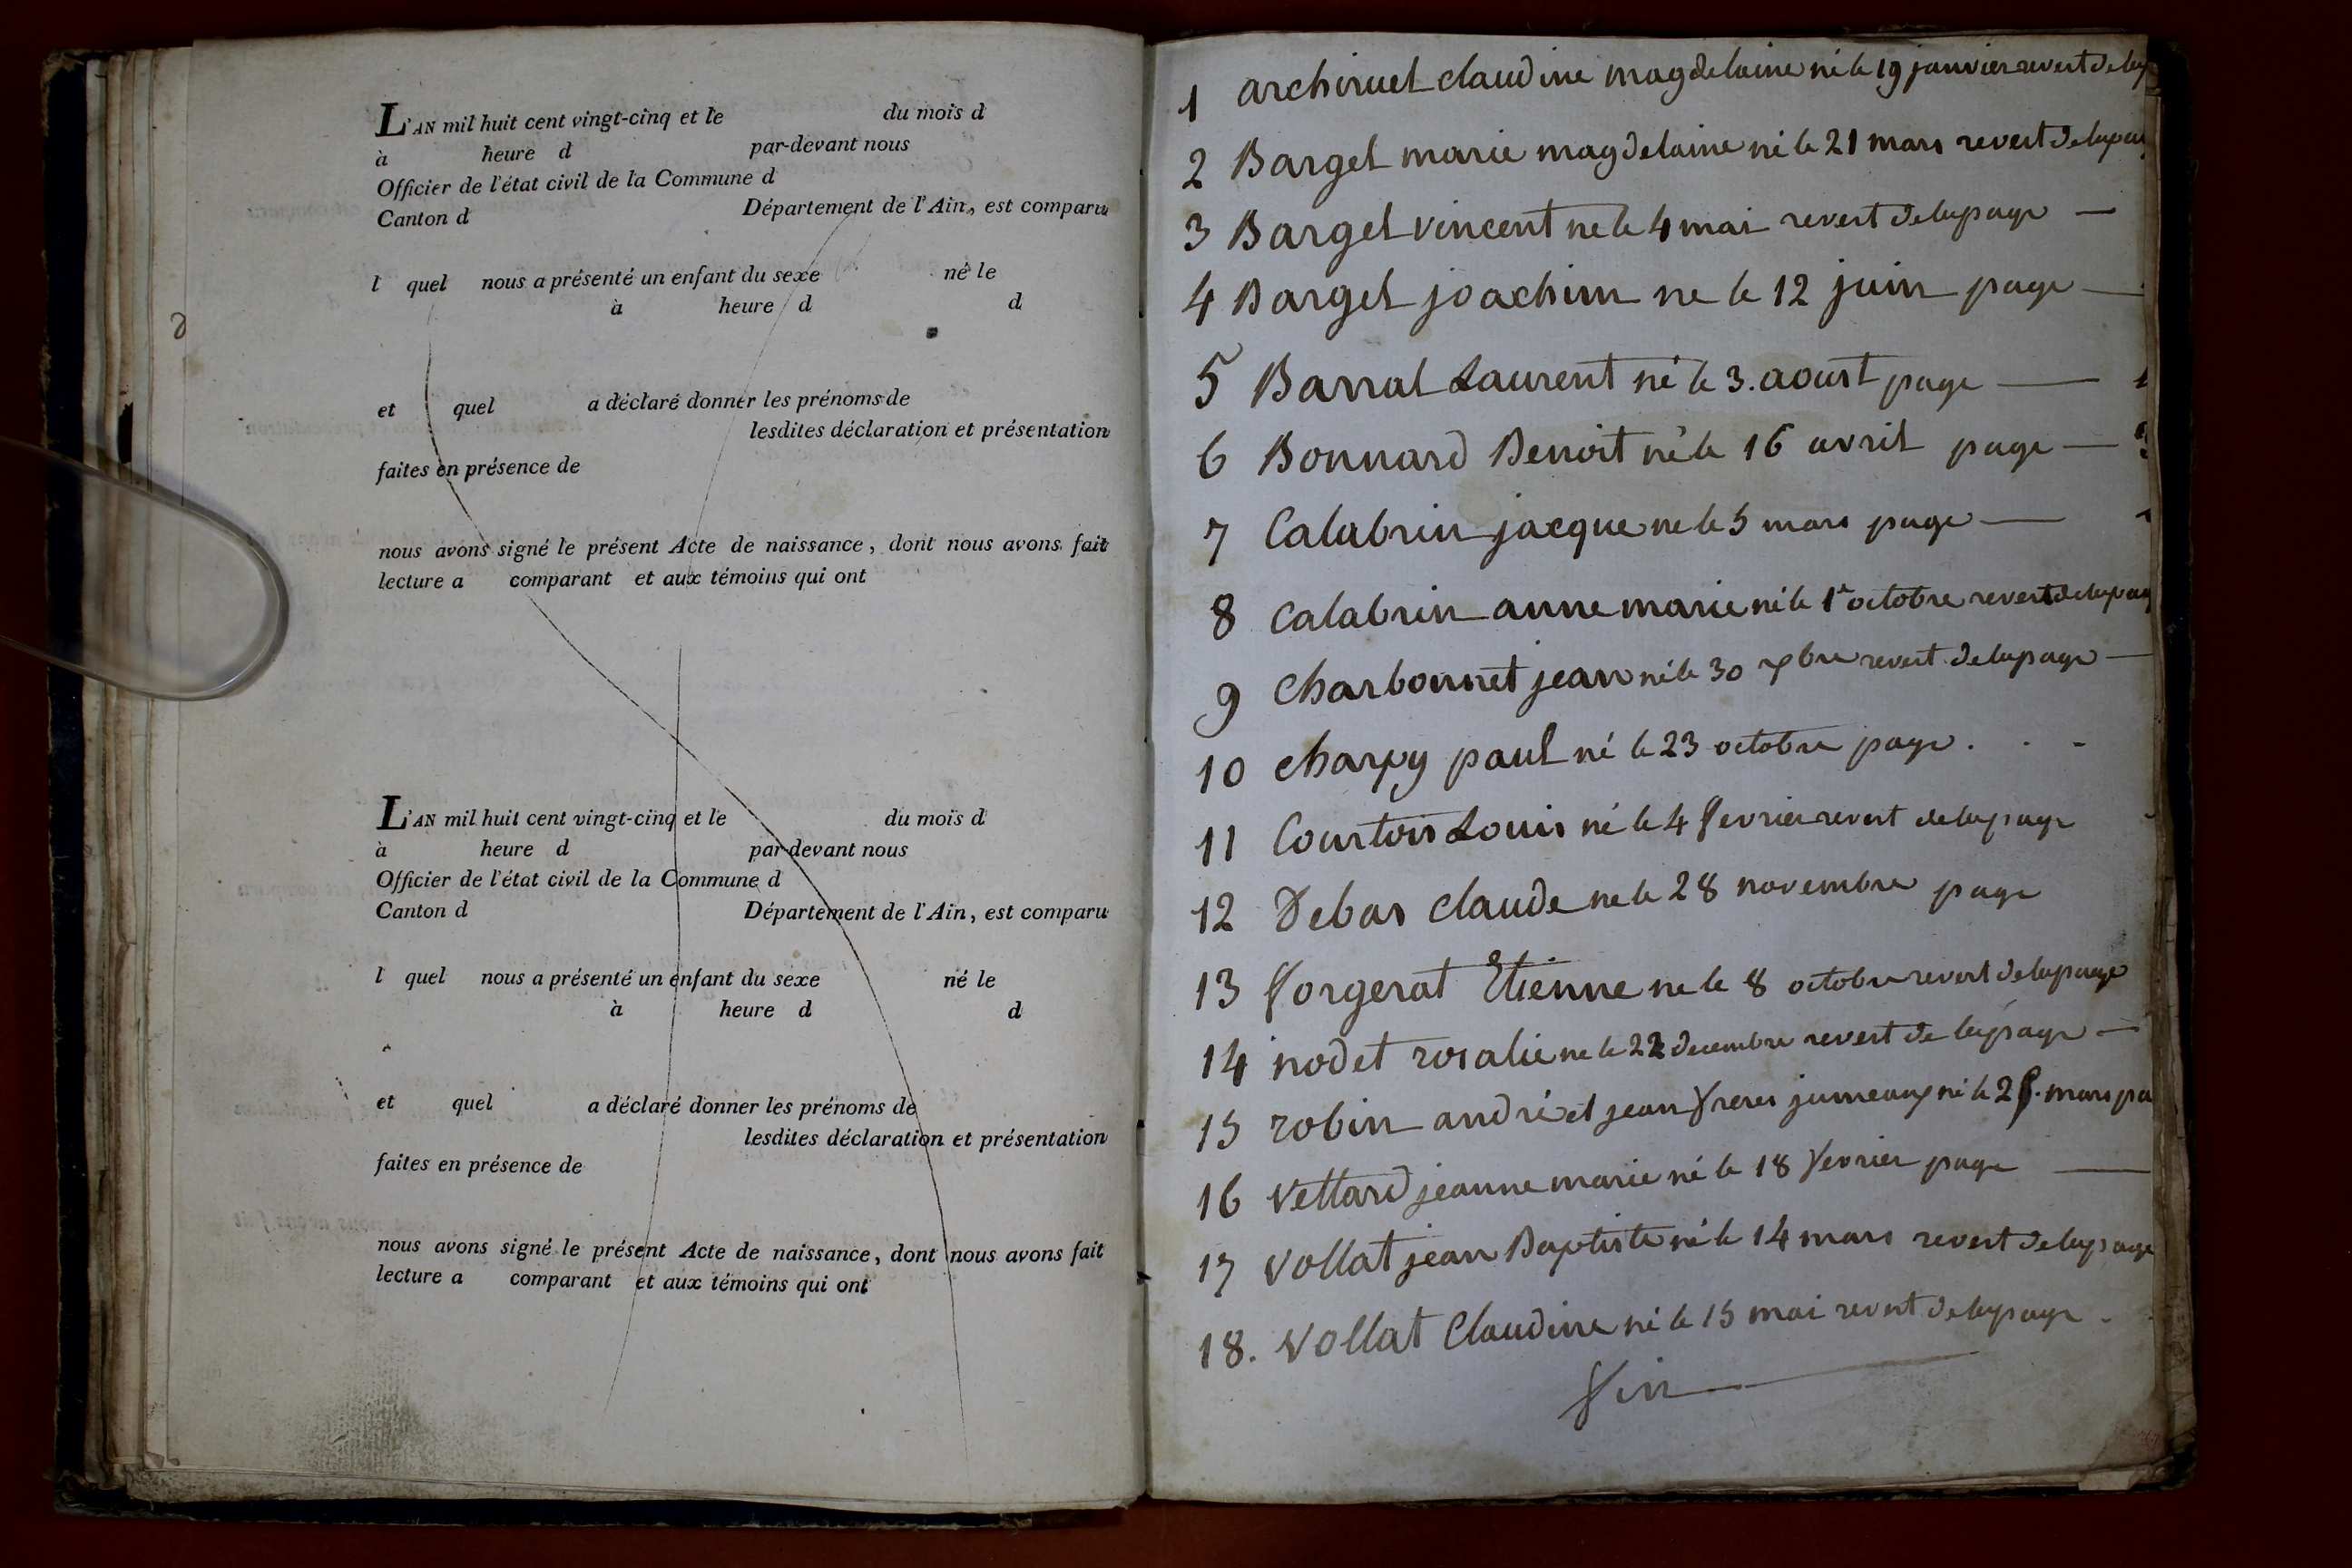 L'AN mil huit cent vingt-cinq et le du mois d
à heure d par-devant nous
Officier de l'état civil de la Commune d
Canton d Département de l'Ain, est comparu
l quel nous a présenté un enfant du sexe né le
à heure d d
et quel a déclaré donner les prénoms de
lesdites déclaration et présentation
faites en présence de
nous avons signé le présent Acte de naissance, dont nous avons fait
lecture a comparant et aux témoins qui ont
L'AN mil huit cent vingt-cinq et le du mois d
à heure d par-devant nous
Officier de l'état civil de la Commune d
Canton d Département de l'Ain, est comparu
l quel nous a présenté un enfant du sexe né le
à heure d d
et quel a déclaré donner les prénoms de
lesdites déclaration et présentation
faites en présence de
nous avons signé le présent Acte de naissance, dont nous avons fait
lecture a comparant et aux témoins qui ont
1 claudine magdelaine né le 19 janvier revert de la
2 Barget marie magdelaine né le 21 mars revert de la pag
3 Barget vincent ne le 4 mai revert de la page —
4 Barget joachim ne le 12 juin page —
5 Barral Laurent né le 3. aoust page —
6 Bonnard Benoit né le 16 avril page —
7 Calabrin jacque ne le 5 mars page —
8 Calabrin anne marie né le 1er octobre revert de la pag
9 Charbonnet jean né le 30 7bre revert de la page —
10 charpy paul né le 23 octobre page . . -
11 Courtois Louis né le 4 fevrier revert de la page
12 Debas claude ne le 28 novembre page
13 forgerat Etienne ne le 8 octobre revert de la page
14 nodet rosalie ne le 22 decembre revert de la page —
15 robin andré et jean freres jumeaux né le mars pa
16 Vettard jeanne marie né le 18 fevrier page —
17 Vollat jean Baptiste né le 14 mars revert de la page
18. Vollat Claudine né le 15 mai revert de la page .
fin